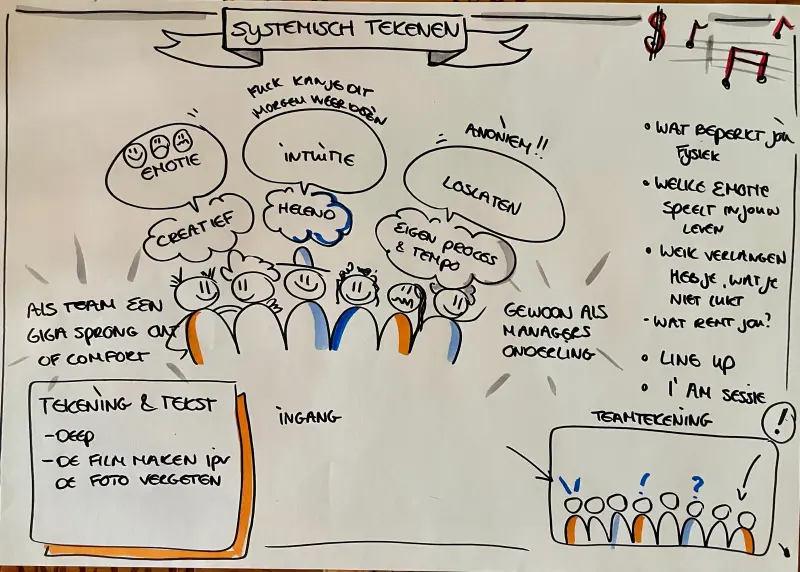 SYSTEMISCH TEKENEN
FUCK KAN JE DIT
MORGEN WEER DOEN
EMOTIE
INTUÏTIE
ANONIEM!!
LOSLATEN
CREATIEF
HELEND
EIGEN PROCES
& TEMPO
ALS TEAM EEN
GIGA SPRONG OUT
OF COMFORT
GEWOON ALS
MANAGERS
ONDERLING
• WAT BEPERKT JOU
FYSIEK
• WELKE EMOTIE
SPEELT IN JOUW
LEVEN
• WELK VERLANGEN
HEB JE, WAT JE
NIET LUKT
- WAT REMT JOU?
• LINE UP
• I'AM SESSIE
TEKENING & TEKST
- DEEP
- DE FILM MAKEN IPV
DE FOTO VERGETEN
INGANG
TEAMTEKENING
!
! ?